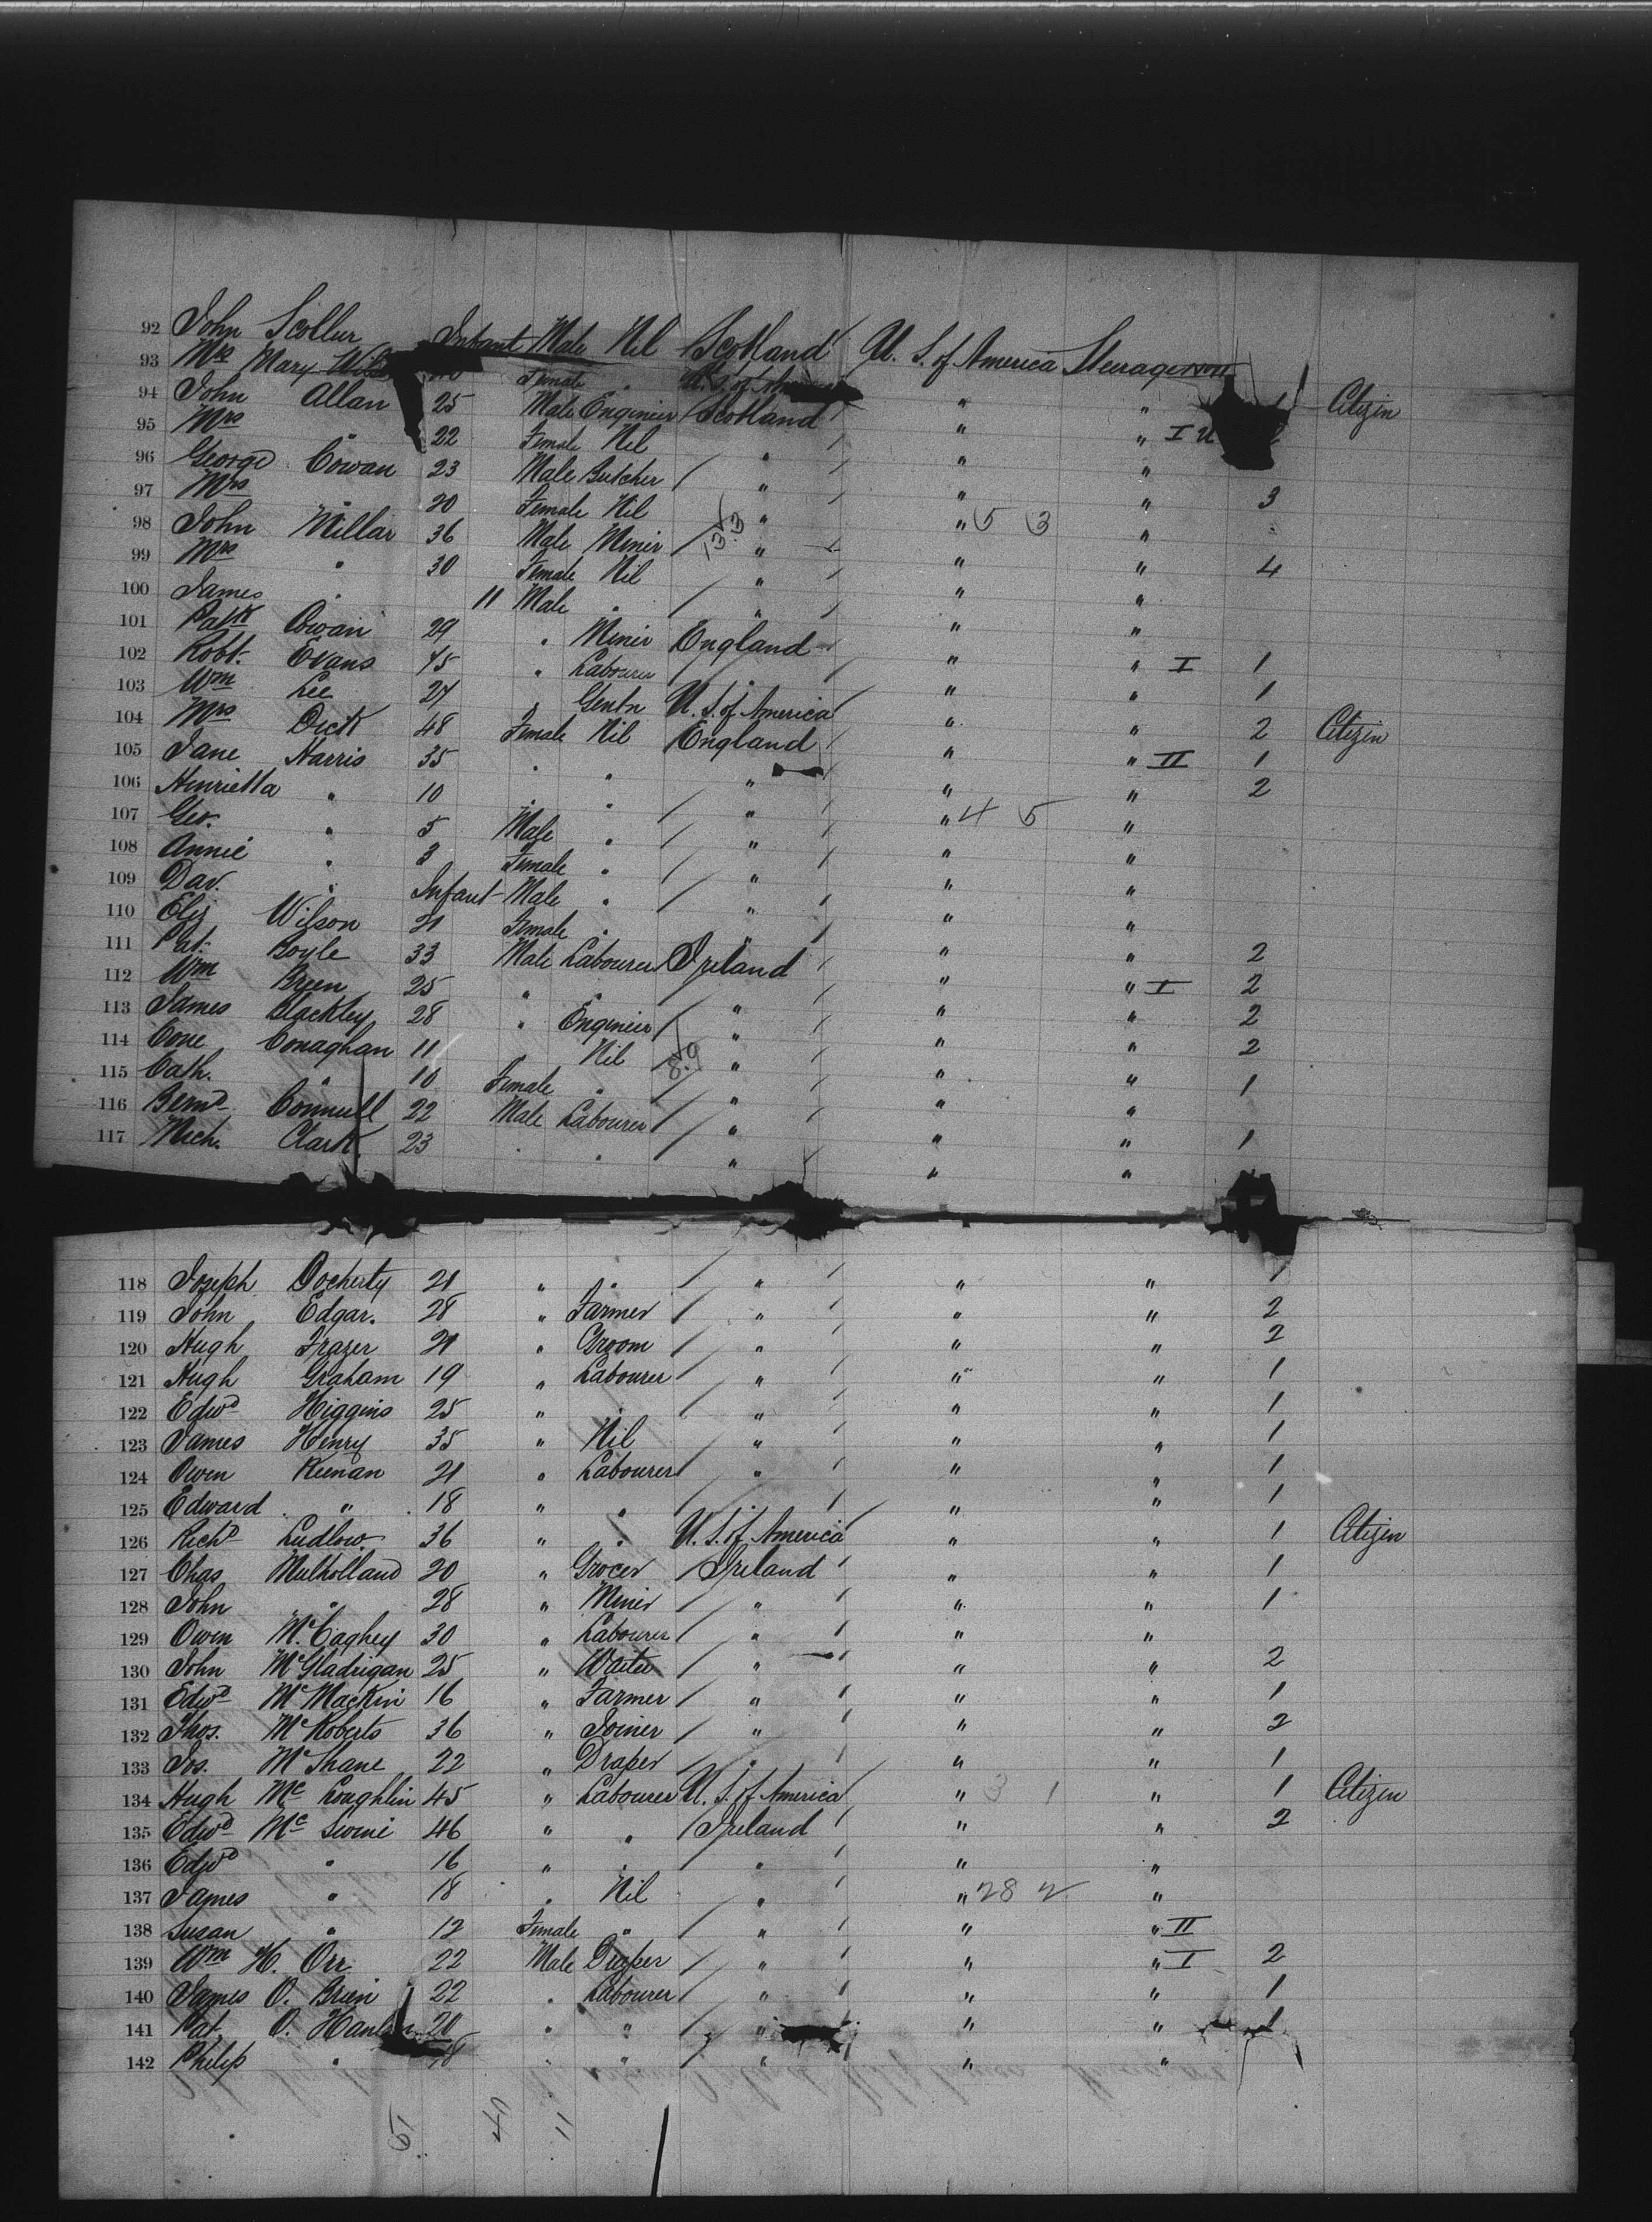 92 John Scollur Infant Male Nil Scotland U. S. of America Steerage
93 Mrs Mary Female " U. S. of " " Citizen
94 John Allan 25 Male Engineer Scotland " " I
95 Mrs " 22 Female Nil " " "
96 George Cowan 23 Male Butcher " " " 3
97 Mrs " 20 Female Nil " " 5 3 "
98 John Millar 36 Male Miner 13.3 " " " 4
99 Mrs " 30 Female Nil " " "
100 James " 11 Male " " " "
101 Patk Cowan 29 " Miner England " " I 1
102 Robt. Evans 45 " Labourer " " " 1
103 Wm Lee 27 " Gentn U. S. of America " " 2 Citizen
104 Mrs Dick 48 Female Nil England " " II 1
105 Jane Harris 35 " " " " " 2
106 Henrietta " 10 " " " " 4 5 "
107 Geo. " 5 Male " " " "
108 Annie " 3 Female " " " "
109 Dav. " Infant Male " " " "
110 Eliz Wilson 21 Female " " " " 2
111 Pat. Boyle 33 Male Labourer Ireland " " I 2
112 Wm Breen 25 " " " " " 2
113 James Blackley 28 " Engineer " " " 2
114 Cone Conaghan 11 " Nil 8.9 " " " 1
115 Cath. " 10 Female " " " "
116 Bernd Connell 22 Male Labourer " " " 1
117 Mich. Clark 23 " " " " "
118 Joseph Docherty 21 " " " " " 1
119 John Edgar. 28 " Farmer " " " 2
120 Hugh Frazer 21 " Groom " " " 2
121 Hugh Graham 19 " Labourer " " " 1
122 Edwd Higgins 25 " " " " " 1
123 James Henry 35 " Nil " " " 1
124 Owen Keenan 21 " Labourer " " " 1
125 Edward " 18 " " " " " 1
126 Richd Ludlow 36 " " U. S. of America " " 1 Citizen
127 Chas Mulholland 20 " Grocer Ireland " " 1
128 John " 28 " Miner " " " 1
129 Owen McCaghey 30 " Labourer " " "
130 John McGladrigan 25 " Waiter " " " 2
131 Edwd McMackin 16 " Farmer " " " 1
132 Thos. McRoberts 36 " Joiner " " " 2
133 Jos. McShane 22 " Draper " " " 1
134 Hugh Mc Loughlin 45 " Labourer U. S. of America " 3 1 " 1 Citizen
135 Edwd Mc Swine 46 " " Ireland " " 2
136 Edwd " 16 " " " " "
137 James " 18 " Nil " " 28 2 "
138 Susan " 12 Female " " " " II
139 Wm H. Orr 22 Male Draper " " " I 2
140 James O. Brien 22 " Labourer " " " 1
141 Pat. O. Hanlon 20 " " " " " 1
142 Philip " 18 " " " " "